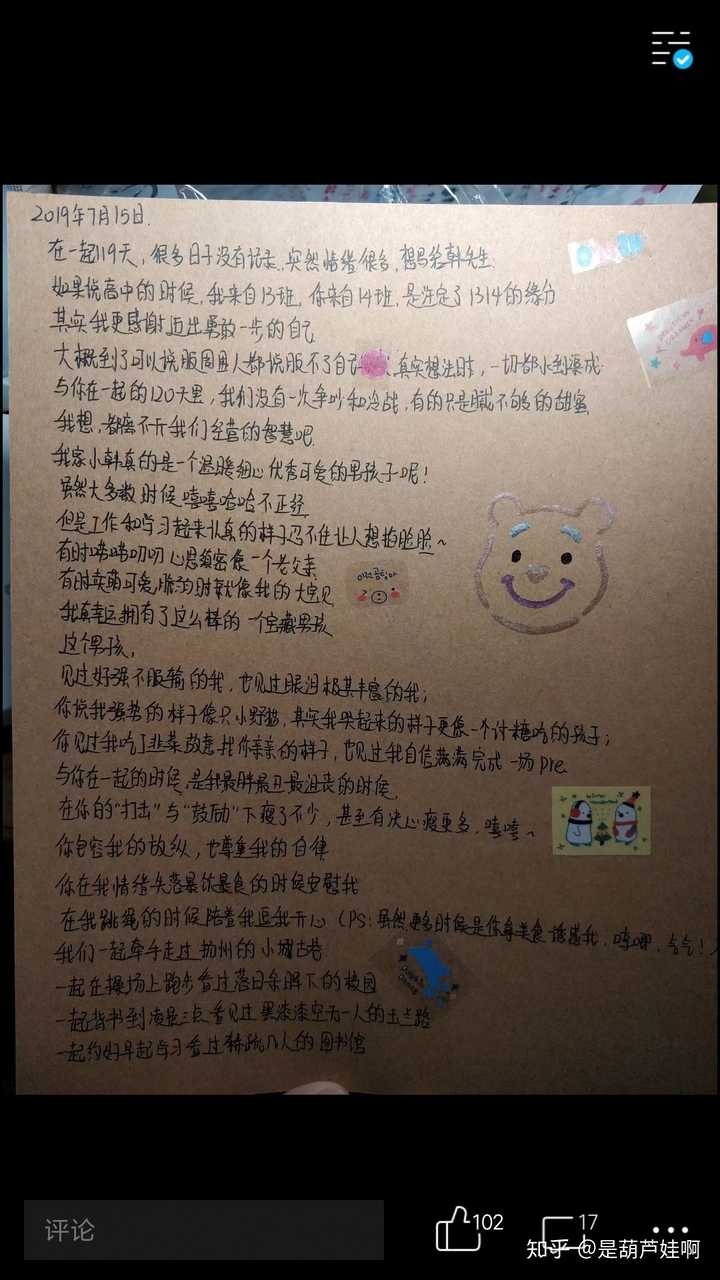 2019年7月15日.
在一起119天，很多日子没有记录.突然情绪很多，想写给韩先生.
如果说高中的时候，我来自13班，你来自14班，是注定了1314的缘分
其实我更感谢迈出勇敢一步的自己
大概到了可以说服周围人都说服不了自己 真实想法时，一切都水到渠成.
与你在一起的120天里，我们没有一次争吵和冷战，有的只是腻不够的甜蜜
我想，都离不开我们经营的智慧吧.
我家小韩真的是一个温暖细心优秀可爱的男孩子呢！
虽然大多数时候嘻嘻哈哈不正经
但是工作和学习起来认真的样子忍不住让人想掐脸脸～
有时唠唠叨叨心思缜密像一个老父亲
有时卖萌可爱 的时候就像我的大宝贝
我真幸运拥有了这么棒的一个宝藏男孩
这个男孩，
见过好强不服输的我，也见过眼泪极其丰富的我；
你说我强势的样子像只小野猫，其实我哭起来的样子更像一个讨糖吃的孩子；
你见过我吃了韭菜故意找你亲亲的样子，也见过我自信满满完成一场pre
与你在一起的时候，是我最胖最丑最沮丧的时候，
在你的“打击”与“鼓励”下瘦了不少，甚至有决心瘦更多，嘻嘻～
你包容我的放纵，也尊重我的自律
你在我情绪失落暴饮暴食的时候安慰我
在我跳绳的时候陪着我逗我开心（PS：虽然更多时候是你拿美食诱惑我，哼唧，生气！
我们一起牵手走过扬州的小城古巷
一起在操场上跑步看过落日余晖下的校园
一起背书到凌晨三点看见过黑漆漆空无一人的主干路
一起约好早起学习看过稀疏几人的图书馆
评论
102
17
知乎 @是葫芦娃啊